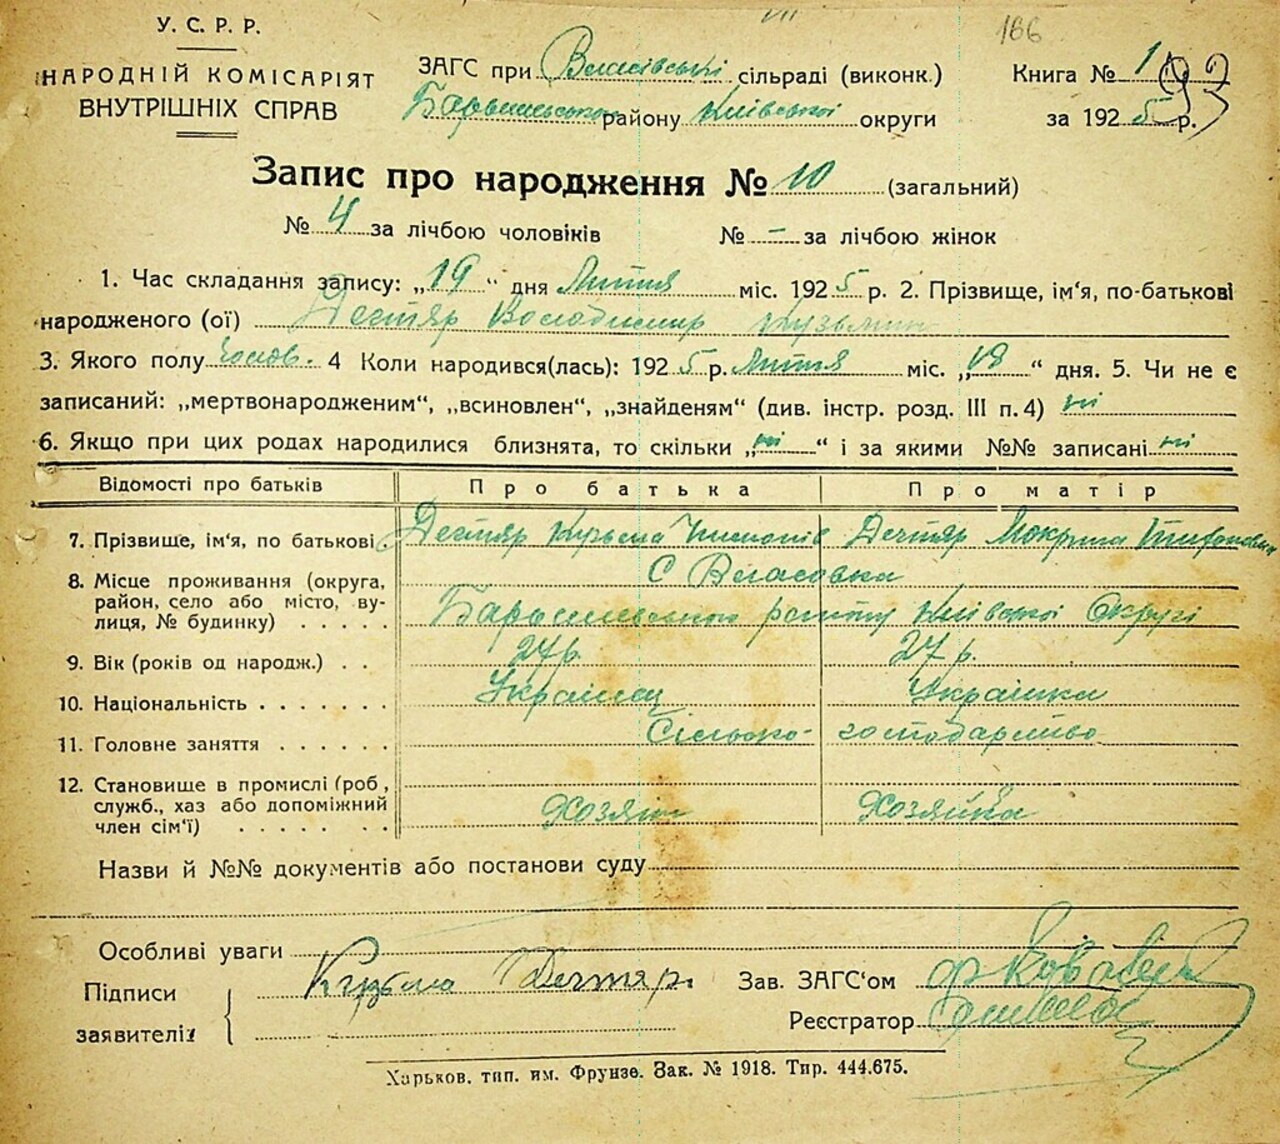 166
У. С. Р. Р.
НАРОДНІЙ КОМІСАРІЯТ
ВНУТРІШНІХ СПРАВ
ЗАГС при Власівські сільраді (виконк.)
Баришевського району Київської округи
Книга № 1
за 1925 р.
193
Запис про народження № 10 (загальний)
№ 4 за лічбою чоловіків № - за лічбою жінок
1. Час складання запису: „19“ дня Лютня міс. 1925 р. 2. Прізвище, ім'я, по-батькові
народженого (ої) Дегтяр Володимир Кузьмич
3. Якого полу чолов. 4 Коли народився(лась): 1925 р. Лютня міс. „18“ дня. 5. Чи не є
записаний: „мертвонародженим“, „всиновлен“, „знайденям“ (див. інстр. розд. III п. 4) ні
6. Якщо при цих родах народилися близнята, то скільки „ні“ і за якими №№ записані ні
Відомості про батьків Про батька Про матір
7. Прізвище, ім'я, по батькові Дегтяр Кузьма Дегтяр Мокрина
8. Місце проживання (округа, район, село або місто, вулиця, № будинку) . . . . . С Власовка
Баришевського району Київської Округи
9. Вік (років од народж.) . . 27 р. 27 р.
10. Національність . . . . . . . Українец Українка
11. Головне заняття . . . . . . Сільсько-господарство
12. Становище в промислі (роб, служб., хаз або допоміжний член сім'ї) . . . . . . . Хозяін Хозяйка
Назви й №№ документів або постанови суду
Особливі уваги
Підписи заявителів Кузьма Дегтяр.
Зав. ЗАГС'ом
Реєстратор
Харьков. тип. им. Фрунзе. Зак. № 1918. Тир. 444.675.